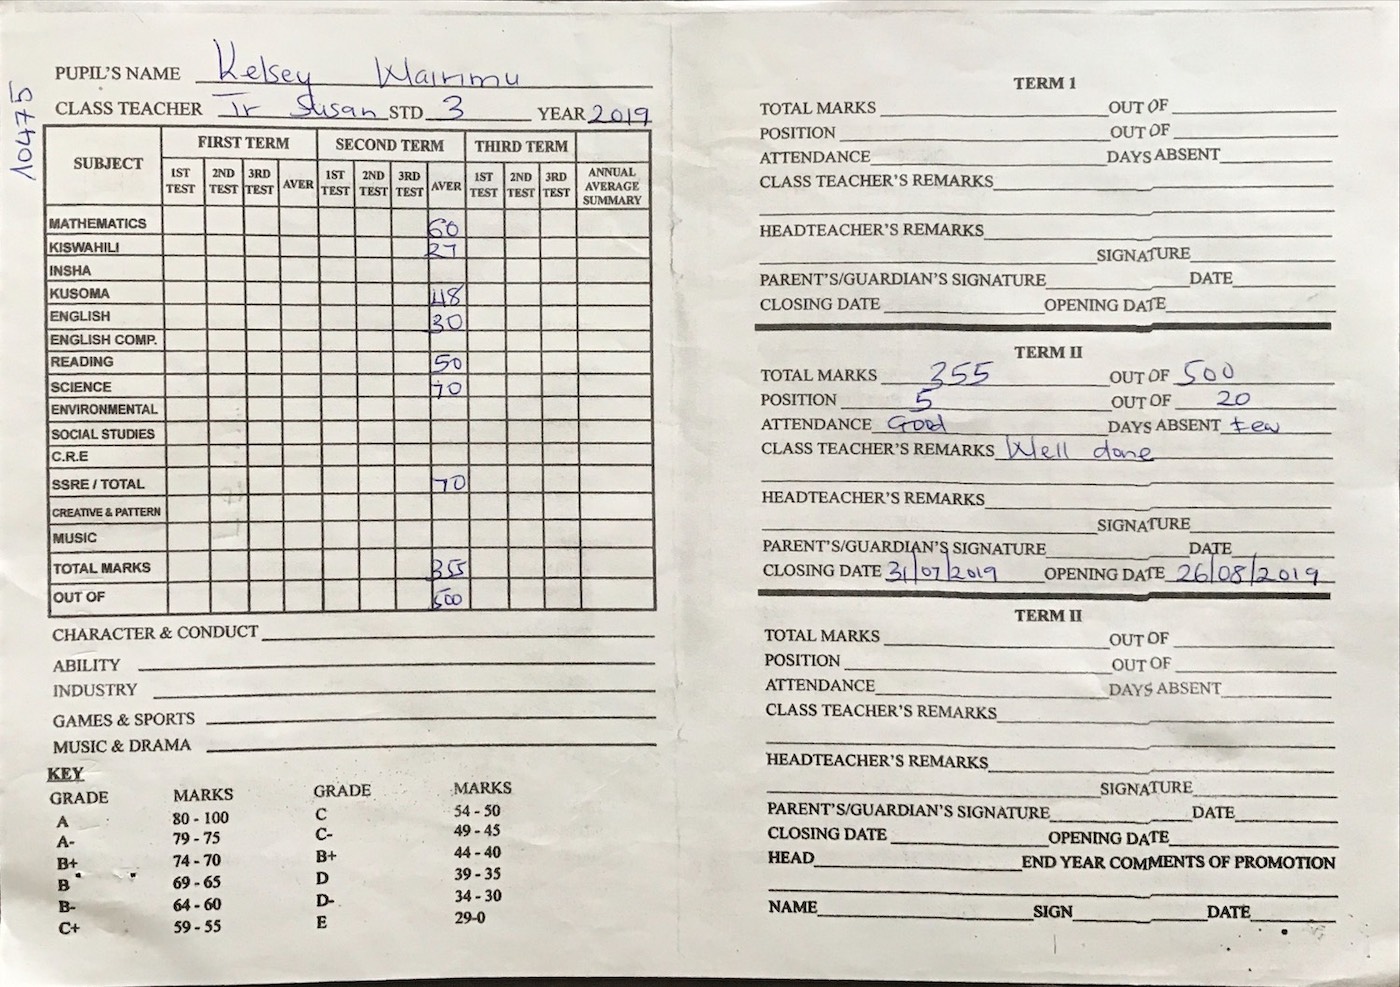 10475
PUPIL'S NAME Kelsey Wairimu
CLASS TEACHER Tr Susan STD 3 YEAR 2019
SUBJECT FIRST TERM SECOND TERM THIRD TERM
1ST TEST 2ND TEST 3RD TEST AVER 1ST TEST 2ND TEST 3RD TEST AVER 1ST TEST 2ND TEST 3RD TEST ANNUAL AVERAGE SUMMARY
MATHEMATICS 60
KISWAHILI 27
INSHA
KUSOMA 48
ENGLISH 30
ENGLISH COMP.
READING 50
SCIENCE 70
ENVIRONMENTAL
SOCIAL STUDIES
C.R.E
SSRE / TOTAL 70
CREATIVE & PATTERN
MUSIC
TOTAL MARKS 355
OUT OF 500
CHARACTER & CONDUCT
ABILITY
INDUSTRY
GAMES & SPORTS
MUSIC & DRAMA
KEY
GRADE MARKS GRADE MARKS
A 80 - 100 C 54 - 50
A- 79 - 75 C- 49 - 45
B+ 74 - 70 B+ 44 - 40
B 69 - 65 D 39 - 35
B- 64 - 60 D- 34 - 30
C+ 59 - 55 E 29-0
TERM 1
TOTAL MARKS OUT OF
POSITION OUT OF
ATTENDANCE DAYS ABSENT
CLASS TEACHER'S REMARKS
HEADTEACHER'S REMARKS
SIGNATURE
PARENT'S/GUARDIAN'S SIGNATURE DATE
CLOSING DATE OPENING DATE
TERM II
TOTAL MARKS 355 OUT OF 500
POSITION 5 OUT OF 20
ATTENDANCE Good DAYS ABSENT Few
CLASS TEACHER'S REMARKS Well done
HEADTEACHER'S REMARKS
SIGNATURE
PARENT'S/GUARDIAN'S SIGNATURE DATE
CLOSING DATE 31/07/2019 OPENING DATE 26/08/2019
TERM II
TOTAL MARKS OUT OF
POSITION OUT OF
ATTENDANCE DAYS ABSENT
CLASS TEACHER'S REMARKS
HEADTEACHER'S REMARKS
SIGNATURE
PARENT'S/GUARDIAN'S SIGNATURE DATE
CLOSING DATE OPENING DATE
HEAD END YEAR COMMENTS OF PROMOTION
NAME SIGN DATE